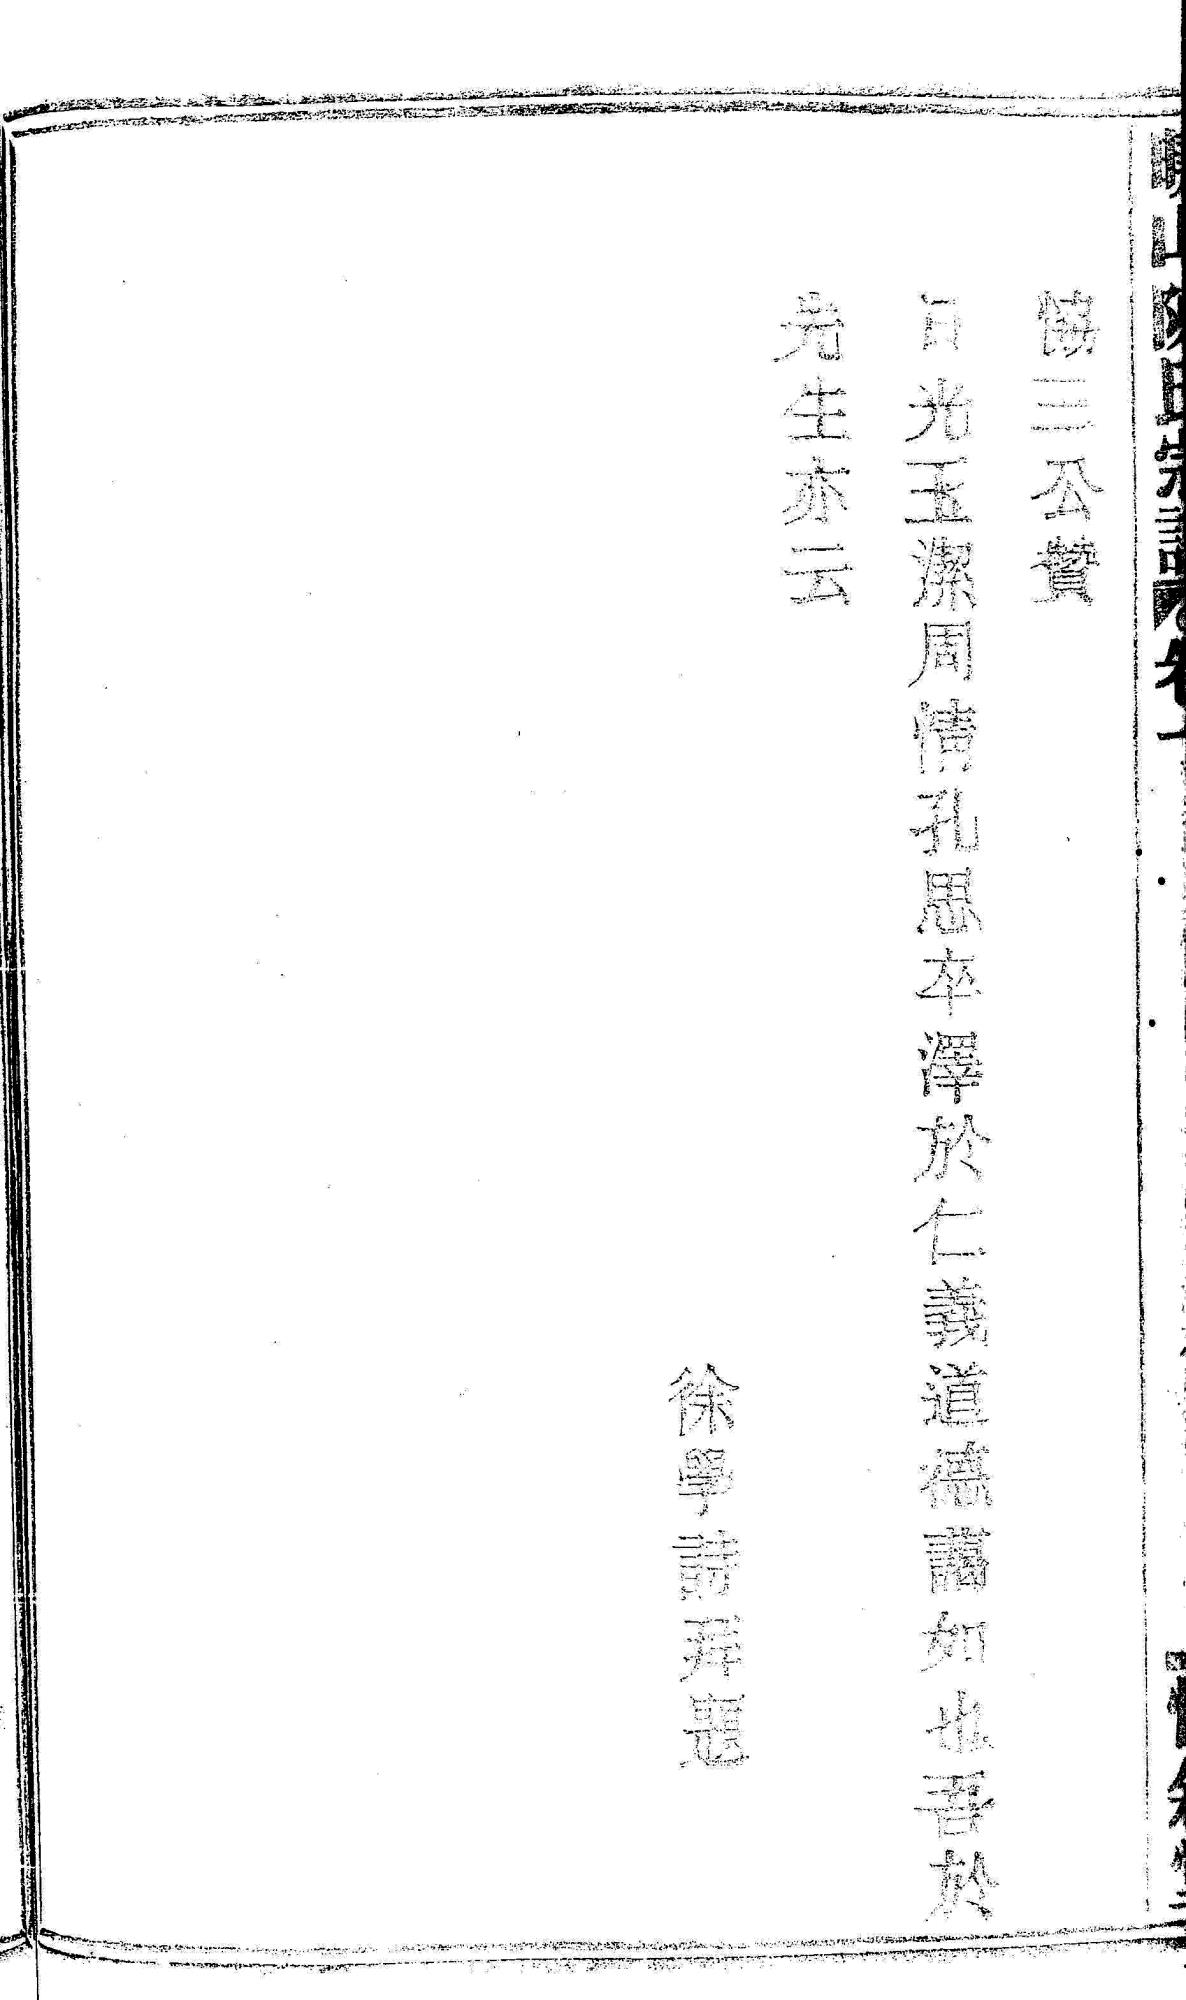 協三公贊
日光玉潔周情孔思卒澤於仁義道德藹如也吾於
先生亦云
徐學詩拜題